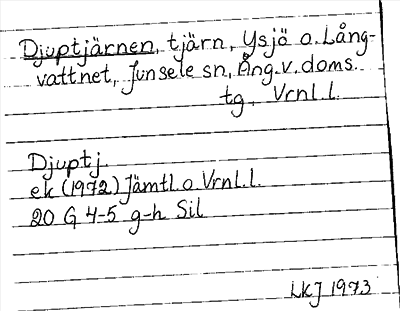 Djuptjärnen, tjärn, Ysjö o. Lång-
vattnet, Junsele sn, Ång. v. doms.
tg, Vrnl. l.
Djuptj.
ek (1972) Jämtl. o Vrnl. l.
20 G 4-5 g-h Sil
LKJ 1973